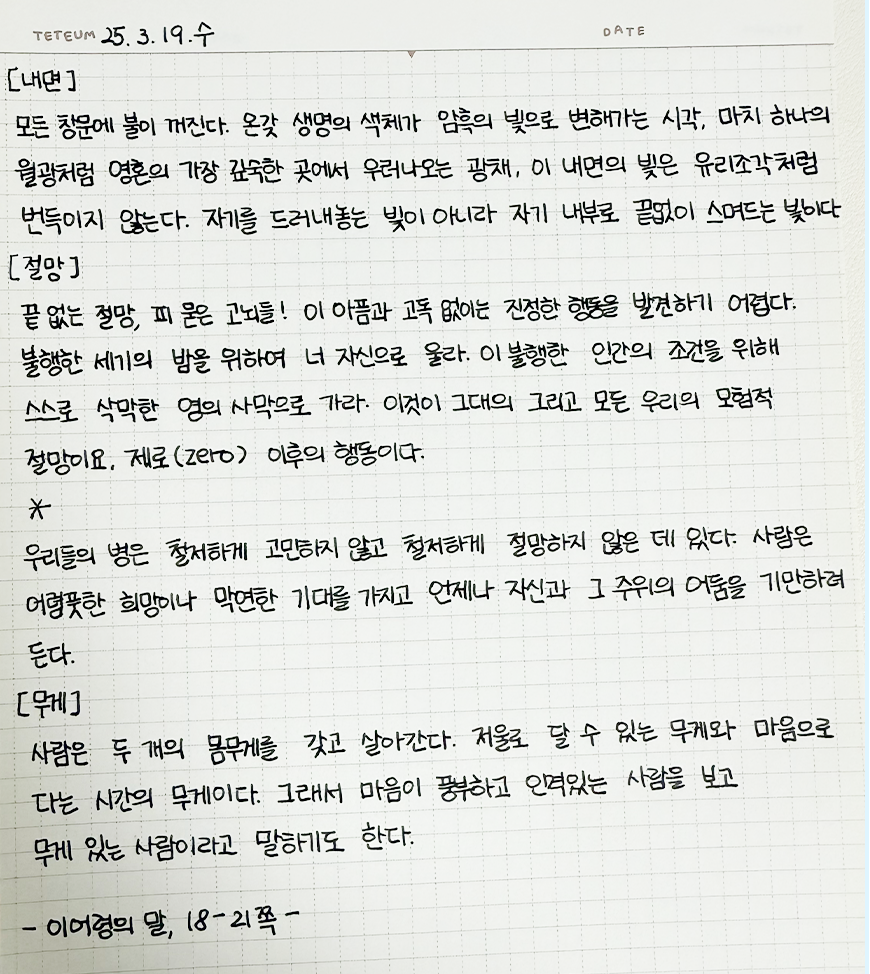 TETEUM 25. 3. 19. 수 DATE
[내면]
모든 창문에 불이 꺼진다. 온갖 생명의 색체가 암흑의 빛으로 변해가는 시각, 마치 하나의
월광처럼 영혼의 가장 깊숙한 곳에서 우러나오는 광채, 이 내면의 빛은 유리조각처럼
번득이지 않는다. 자기를 드러내놓는 빛이 아니라 자기 내부로 끝없이 스며드는 빛이다
[절망]
끝 없는 절망, 피 묻은 고뇌들! 이 아픔과 고독 없이는 진정한 행동을 발견하기 어렵다.
불행한 세기의 밤을 위하여 너 자신으로 울라. 이 불행한 인간의 조건을 위해
스스로 삭막한 영의 사막으로 가라. 이것이 그대의 그리고 모든 우리의 모험적
절망이요, 제로(zero) 이후의 행동이다.
*
우리들의 병은 철저하게 고민하지 않고 철저하게 절망하지 않은 데 있다. 사람은
어렴풋한 희망이나 막연한 기대를 가지고 언제나 자신과 그 주위의 어둠을 기만하려
든다.
[무게]
사람은 두 개의 몸무게를 갖고 살아간다. 저울로 달 수 있는 무게와 마음으로
다는 시간의 무게이다. 그래서 마음이 풍부하고 인격있는 사람을 보고
무게 있는 사람이라고 말하기도 한다.
- 이어령의 말, 18-21쪽 -